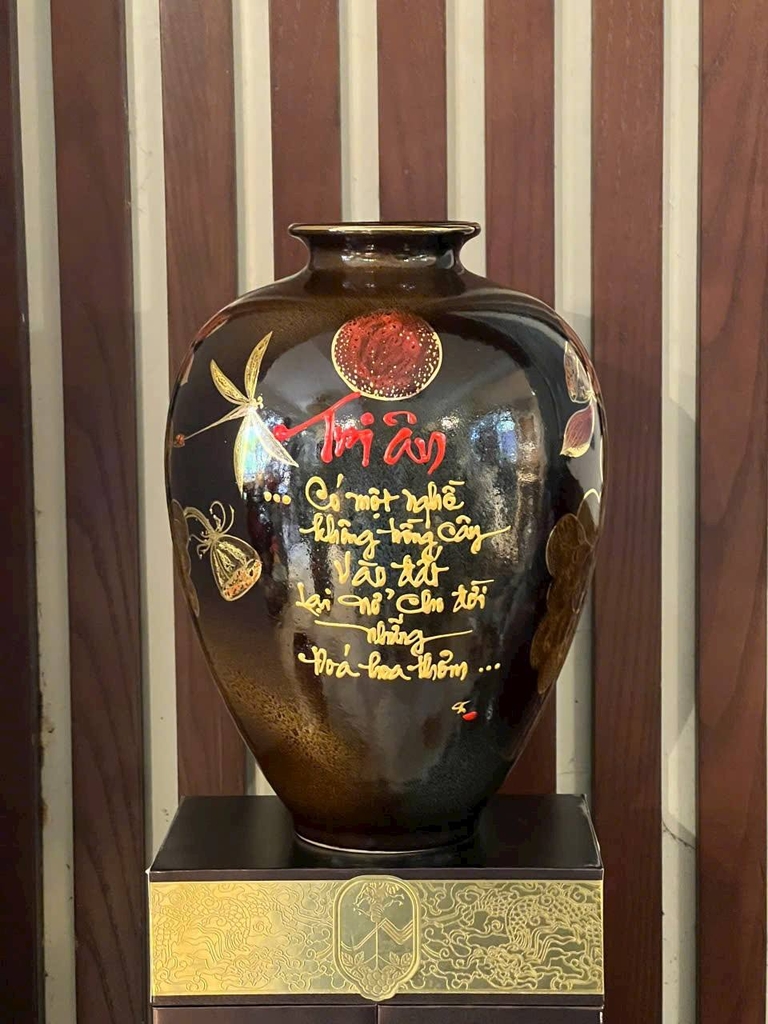 Tri ân
... Có một nghề
không trồng cây
vào đất
lại nở cho đời
những
đoá hoa thơm ...